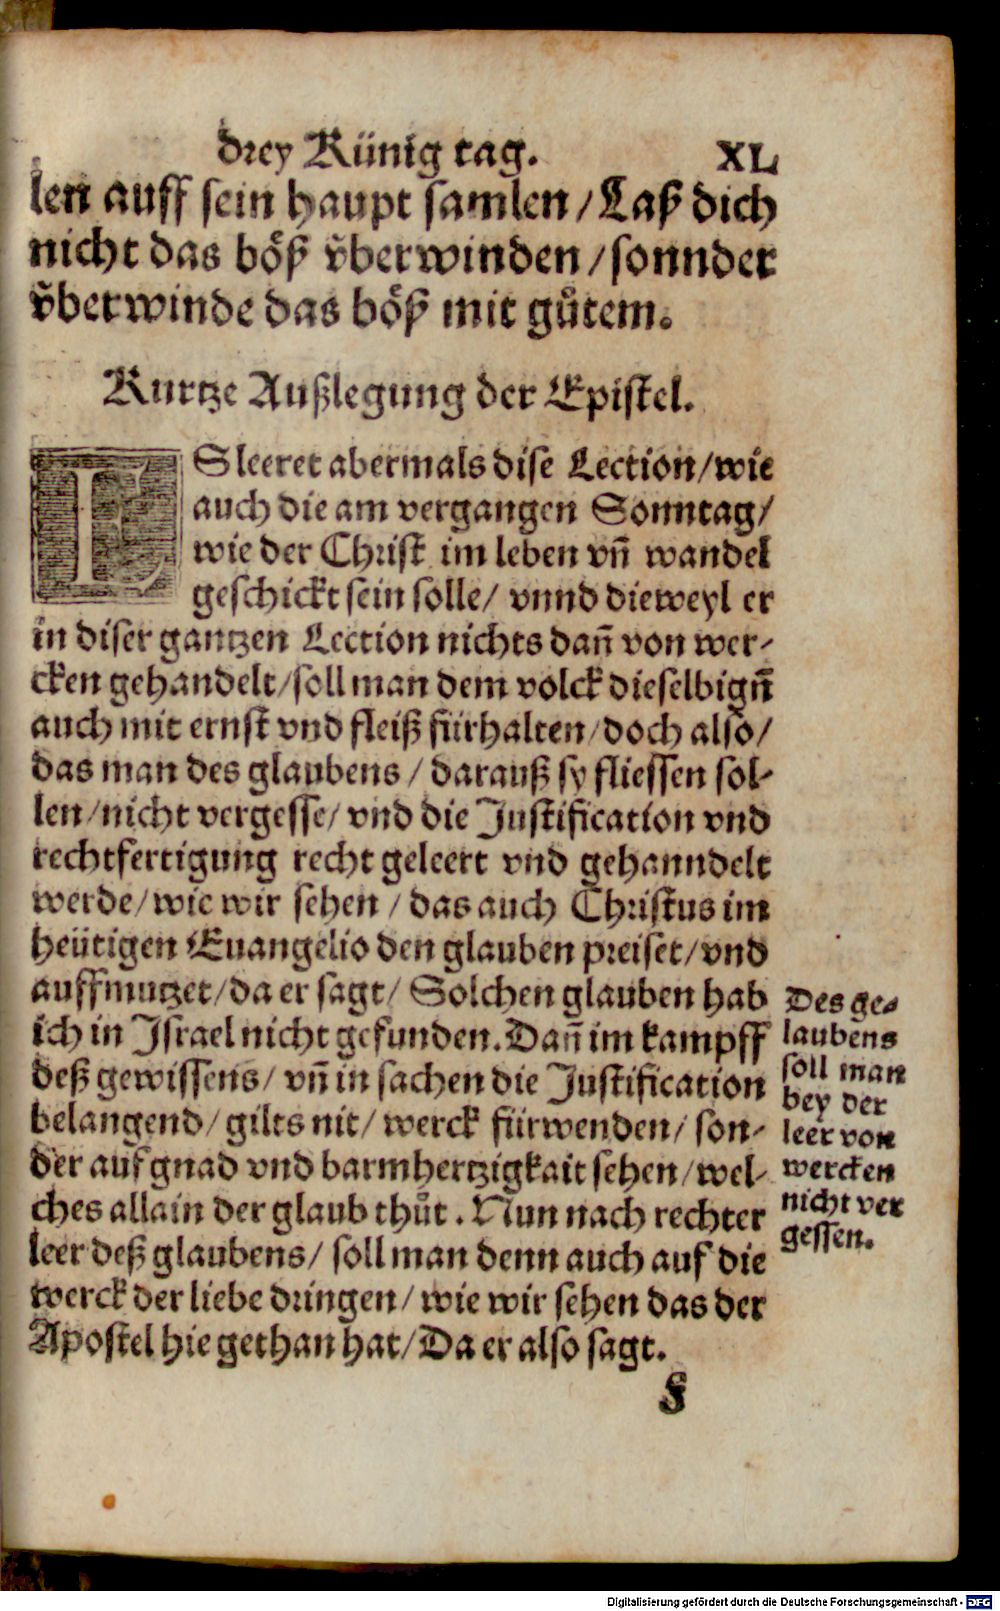 drey Künig tag. XL
len auff sein haupt samlen / Laß dich
nicht das böß v̈berwinden / sonnder
v̈berwinde das böß mit gůtem.
Kurtze Außlegung der Epistel.
ES leeret abermals dise Lection / wie
auch die am vergangen Sonntag /
wie der Christ im leben vn̄ wandel
geschickt sein solle / vnnd dieweyl er
in diser gantzen Lection nichts dan̄ von wer-
cken gehandelt / soll man dem volck dieselbign̄
auch mit ernst vnd fleiß fürhalten / doch also /
das man des glaubens / darauß sy fliessen sol-
len / nicht vergesse / vnd die Justification vnd
rechtfertigung recht geleert vnd gehanndelt
werde / wie wir sehen / das auch Christus im
heütigen Euangelio den glauben preiset / vnd
auffmutzet / da er sagt / Solchen glauben hab
ich in Israel nicht gefunden. Dan̄ im kampff
deß gewissens / vn̄ in sachen die Justification
belangend / gilts nit / werck fürwenden / son-
der auf gnad vnd barmhertzigkait sehen / wel-
ches allain der glaub thůt. Nun nach rechter
leer deß glaubens / soll man denn auch auf die
werck der liebe dringen / wie wir sehen das der
Apostel hie gethan hat / Da er also sagt.
Des ge-
laubens
soll man
bey der
leer von
wercken
nicht ver
gessen.
f
Digitalisierung gefördert durch die Deutsche Forschungsgemeinschaft - DFG